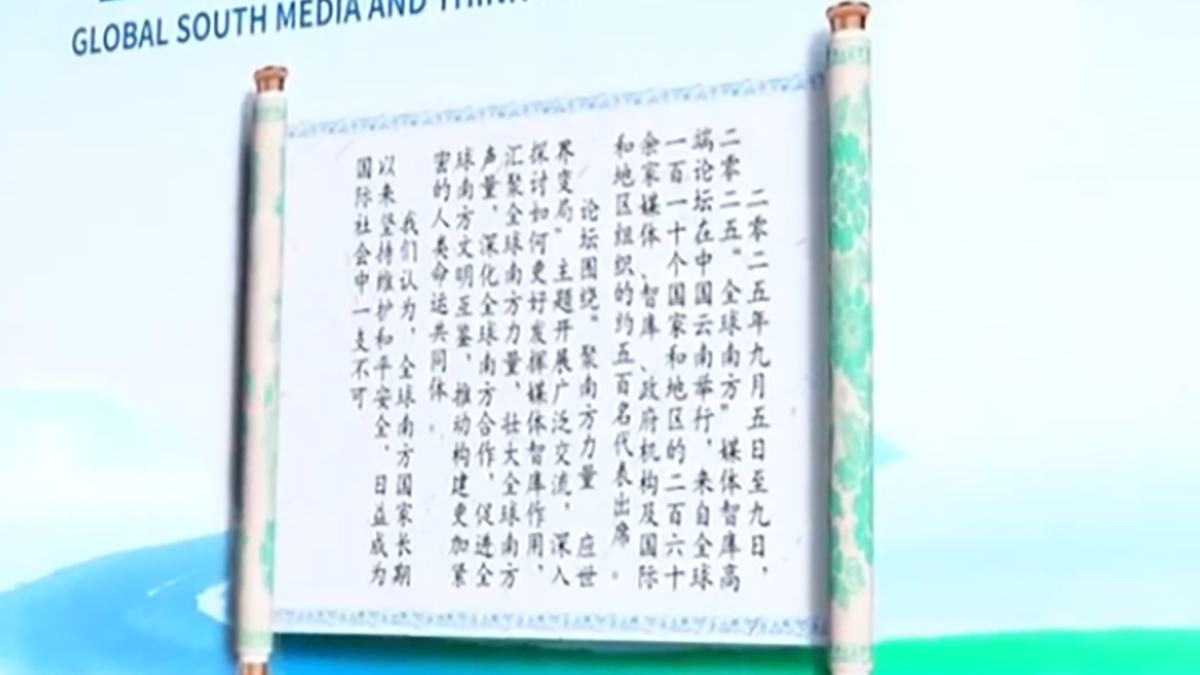 GLOBAL SOUTH MEDIA AND THINK
二零二五年九月五日至九日，
二零二五“全球南方”媒体智库高
端论坛在中国云南举行，来自全球
一百一十个国家和地区的二百六十
余家媒体、智库、政府机构及国际
和地区组织的约五百名代表出席。
论坛围绕“聚南方力量 应世
界变局”主题开展广泛交流，深入
探讨如何更好发挥媒体智库作用，
汇聚全球南方力量、壮大全球南方
声量，深化全球南方合作，促进全
球南方文明互鉴，推动构建更加紧
密的人类命运共同体。
我们认为，全球南方国家长期
以来坚持维护和平安全，日益成为
国际社会中一支不可